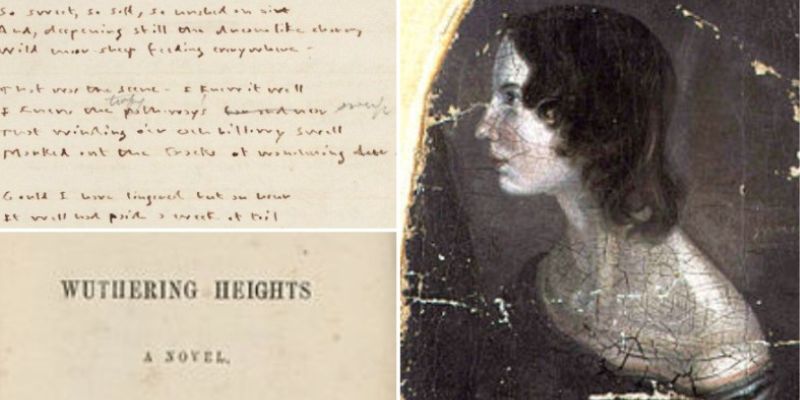 So sweet, so soft, so hushed an air
And, deepening still the dreamlike charm,
Wild moor-sheep feeding everywhere -
That was the scene - I knew it well
I knew the turfy pathways far and near sweep
That winding o'er each billowy swell
Marked out the tracks of wandering deer
Could I have lingered but an hour
It well had paid a week of toil
WUTHERING HEIGHTS
A NOVEL,